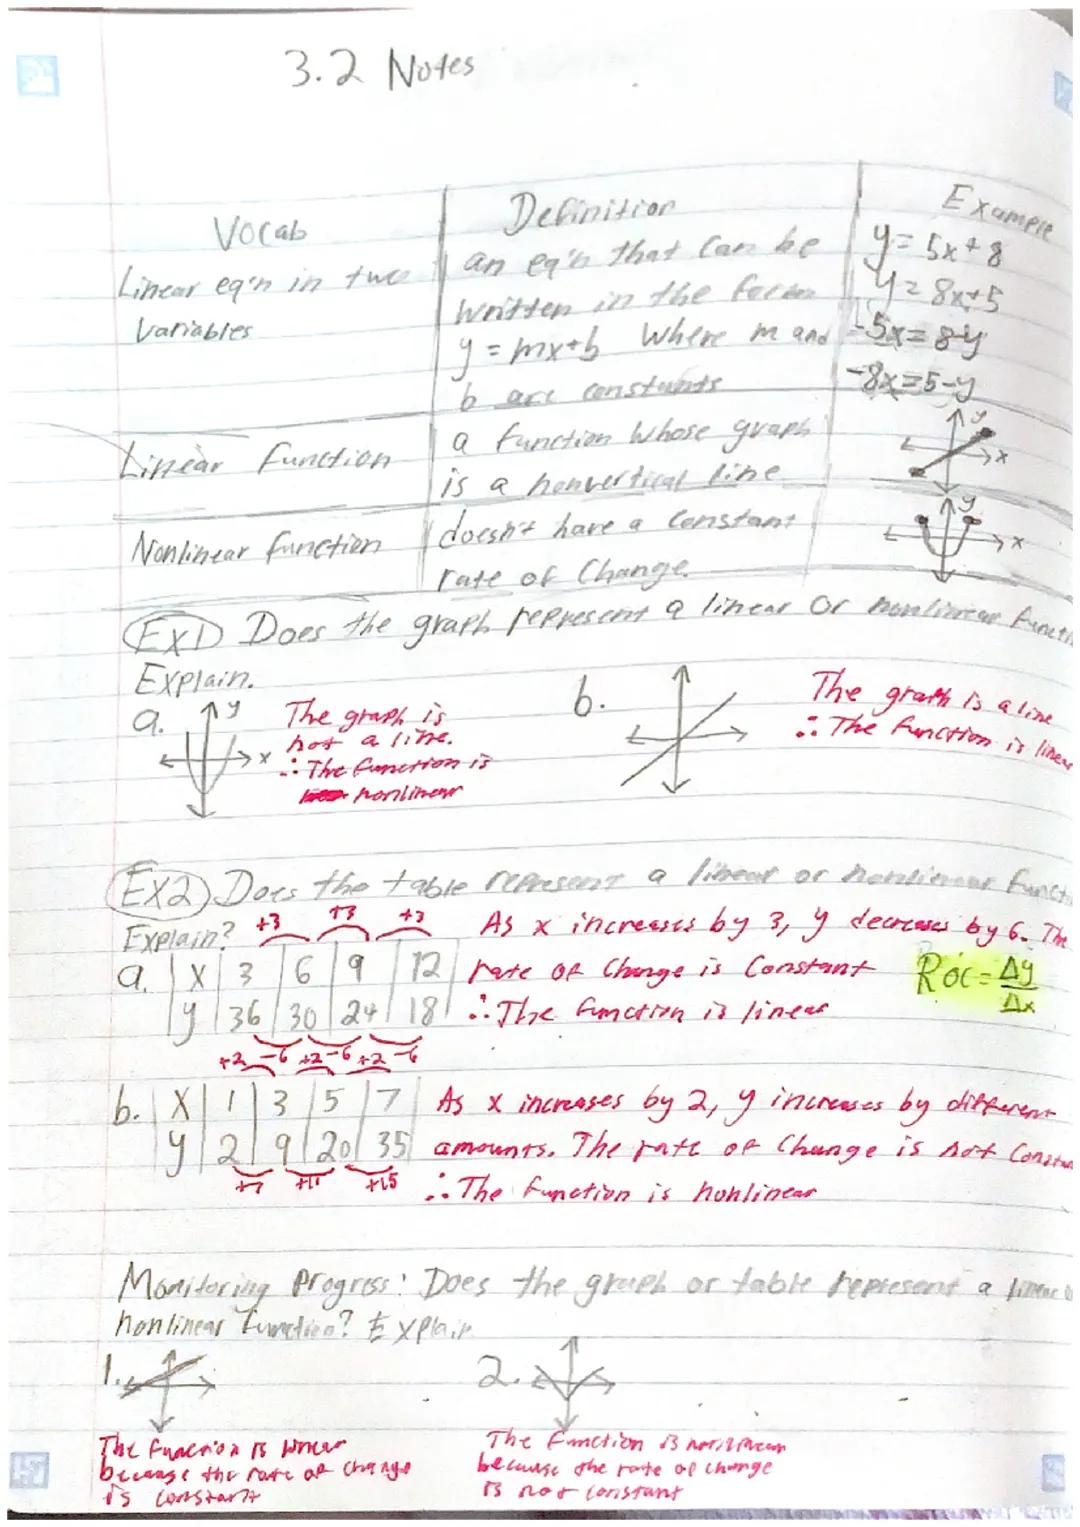 3.2 Notes
Vocab
Definition
Example
Linear eq'n in two
variables
an eq'n that can be
written in the form
y = mx+b where m and
b are constants
y = 5x + 8
y = 8x+5
-5x = 8-y
-8x = 5-y
Linear function
a function whose graph
is a nonvertical line
y
x
Nonlinear function
doesn't have a constant
rate of change.
y
x
Ex1 Does the graph represent a linear or nonlinear functi
Explain.
a.
y
x
The graph is
not a line.
∴ The function is
nonlinear
b.
The graph is a line
∴ The function is linear
Ex2 Does the table represent a linear or nonlinear funct
Explain?
+3 +3 +3
As x increases by 3, y decreases by 6. The
a. x 3 6 9 12
rate of change is constant
Roc = Δy/Δx
y 36 30 24 18
∴ The function is linear
+2 -6 +2 -6 +2 -6
b. x 1 3 5 7
As x increases by 2, y increases by different
y 2 9 20 35
amounts. The rate of change is not constan
+7 +11 +15
∴ The function is nonlinear
Monitoring Progress: Does the graph or table represent a linear
nonlinear function? Explain
1.
The function is linear
because the rate of change
is constant
2.
The function is nonlinear
because the rate of change
is not constant